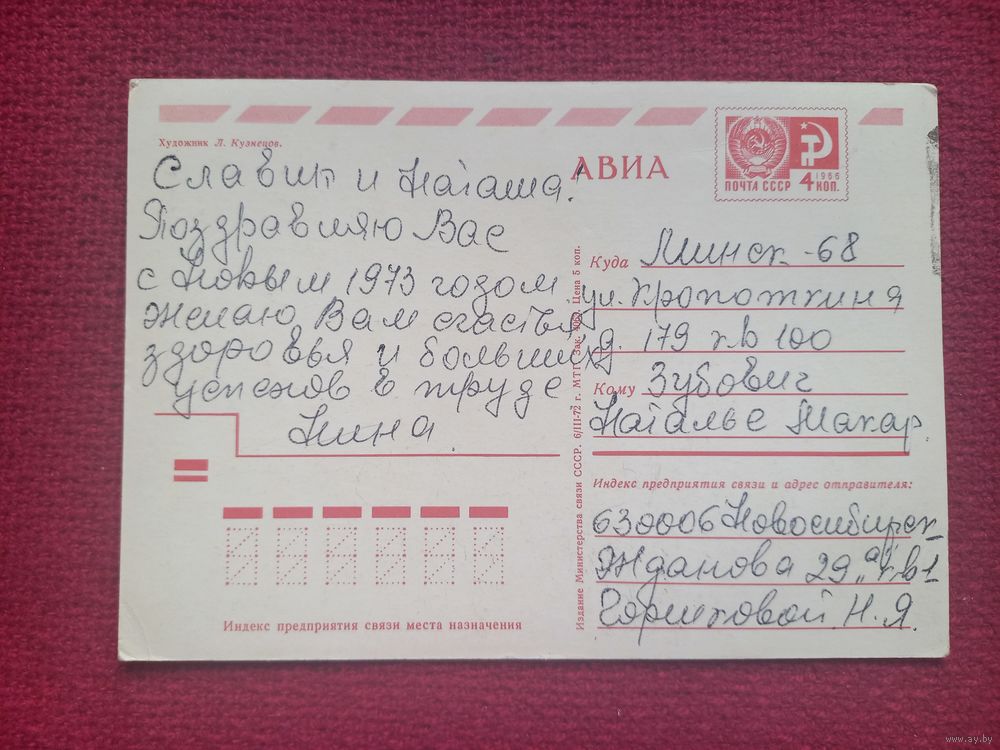 Художник Л. Кузнецов.
АВИА
ПОЧТА СССР
1966
4 КОП.
Славик и Наташа!
Поздравляю Вас
с Новым 1973 годом
желаю Вам счастья,
здоровья и больших
успехов в труде
Нина.
Индекс предприятия связи места назначения
Издание Министерства связи СССР. 6/III-72 г. МТГ. Зак. Цена 5 коп.
Куда Минск-68
ул. Кропоткина
д. 179 кв 100
Кому Зубович
Наталье Макар.
Индекс предприятия связи и адрес отправителя:
630006 Новосибирск
Жданова 29 "а" кв 1
Горшковой Н. Я.
www.ay.by